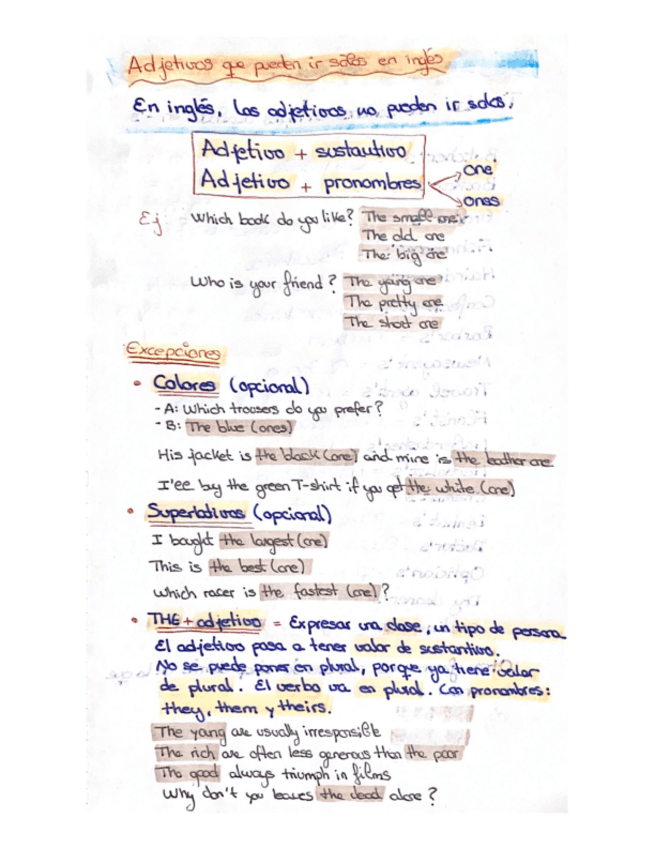 Adjetivos que pueden ir solos en inglés
En inglés, los adjetivos no pueden ir solos.
Adjetivo + sustantivo
Adjetivo + pronombres
one
ones
Ej
Which book do you like? The small one
The old one
The big one
Who is your friend? The young one
The pretty one
The short one
Excepciones
• Colores (opcional)
- A: Which trousers do you prefer?
- B: The blue (ones)
His jacket is the black (one) and mine is the leather one
I'll buy the green T-shirt if you get the white (one)
• Superlativos (opcional)
I bought the largest (one)
This is the best (one)
Which racer is the fastest (one)?
• THE + adjetivo = Expresar una clase, un tipo de persona
El adjetivo pasa a tener valor de sustantivo.
No se puede poner en plural, porque ya tiene valor
de plural. El verbo va en plural. Con pronombres:
they, them y theirs.
The young are usually irresponsible
The rich are often less generous than the poor
The good always triumph in films
Why don't you leaves the dead alone?